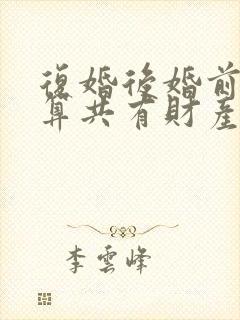 復婚後婚前
算共有財產
李雲峰